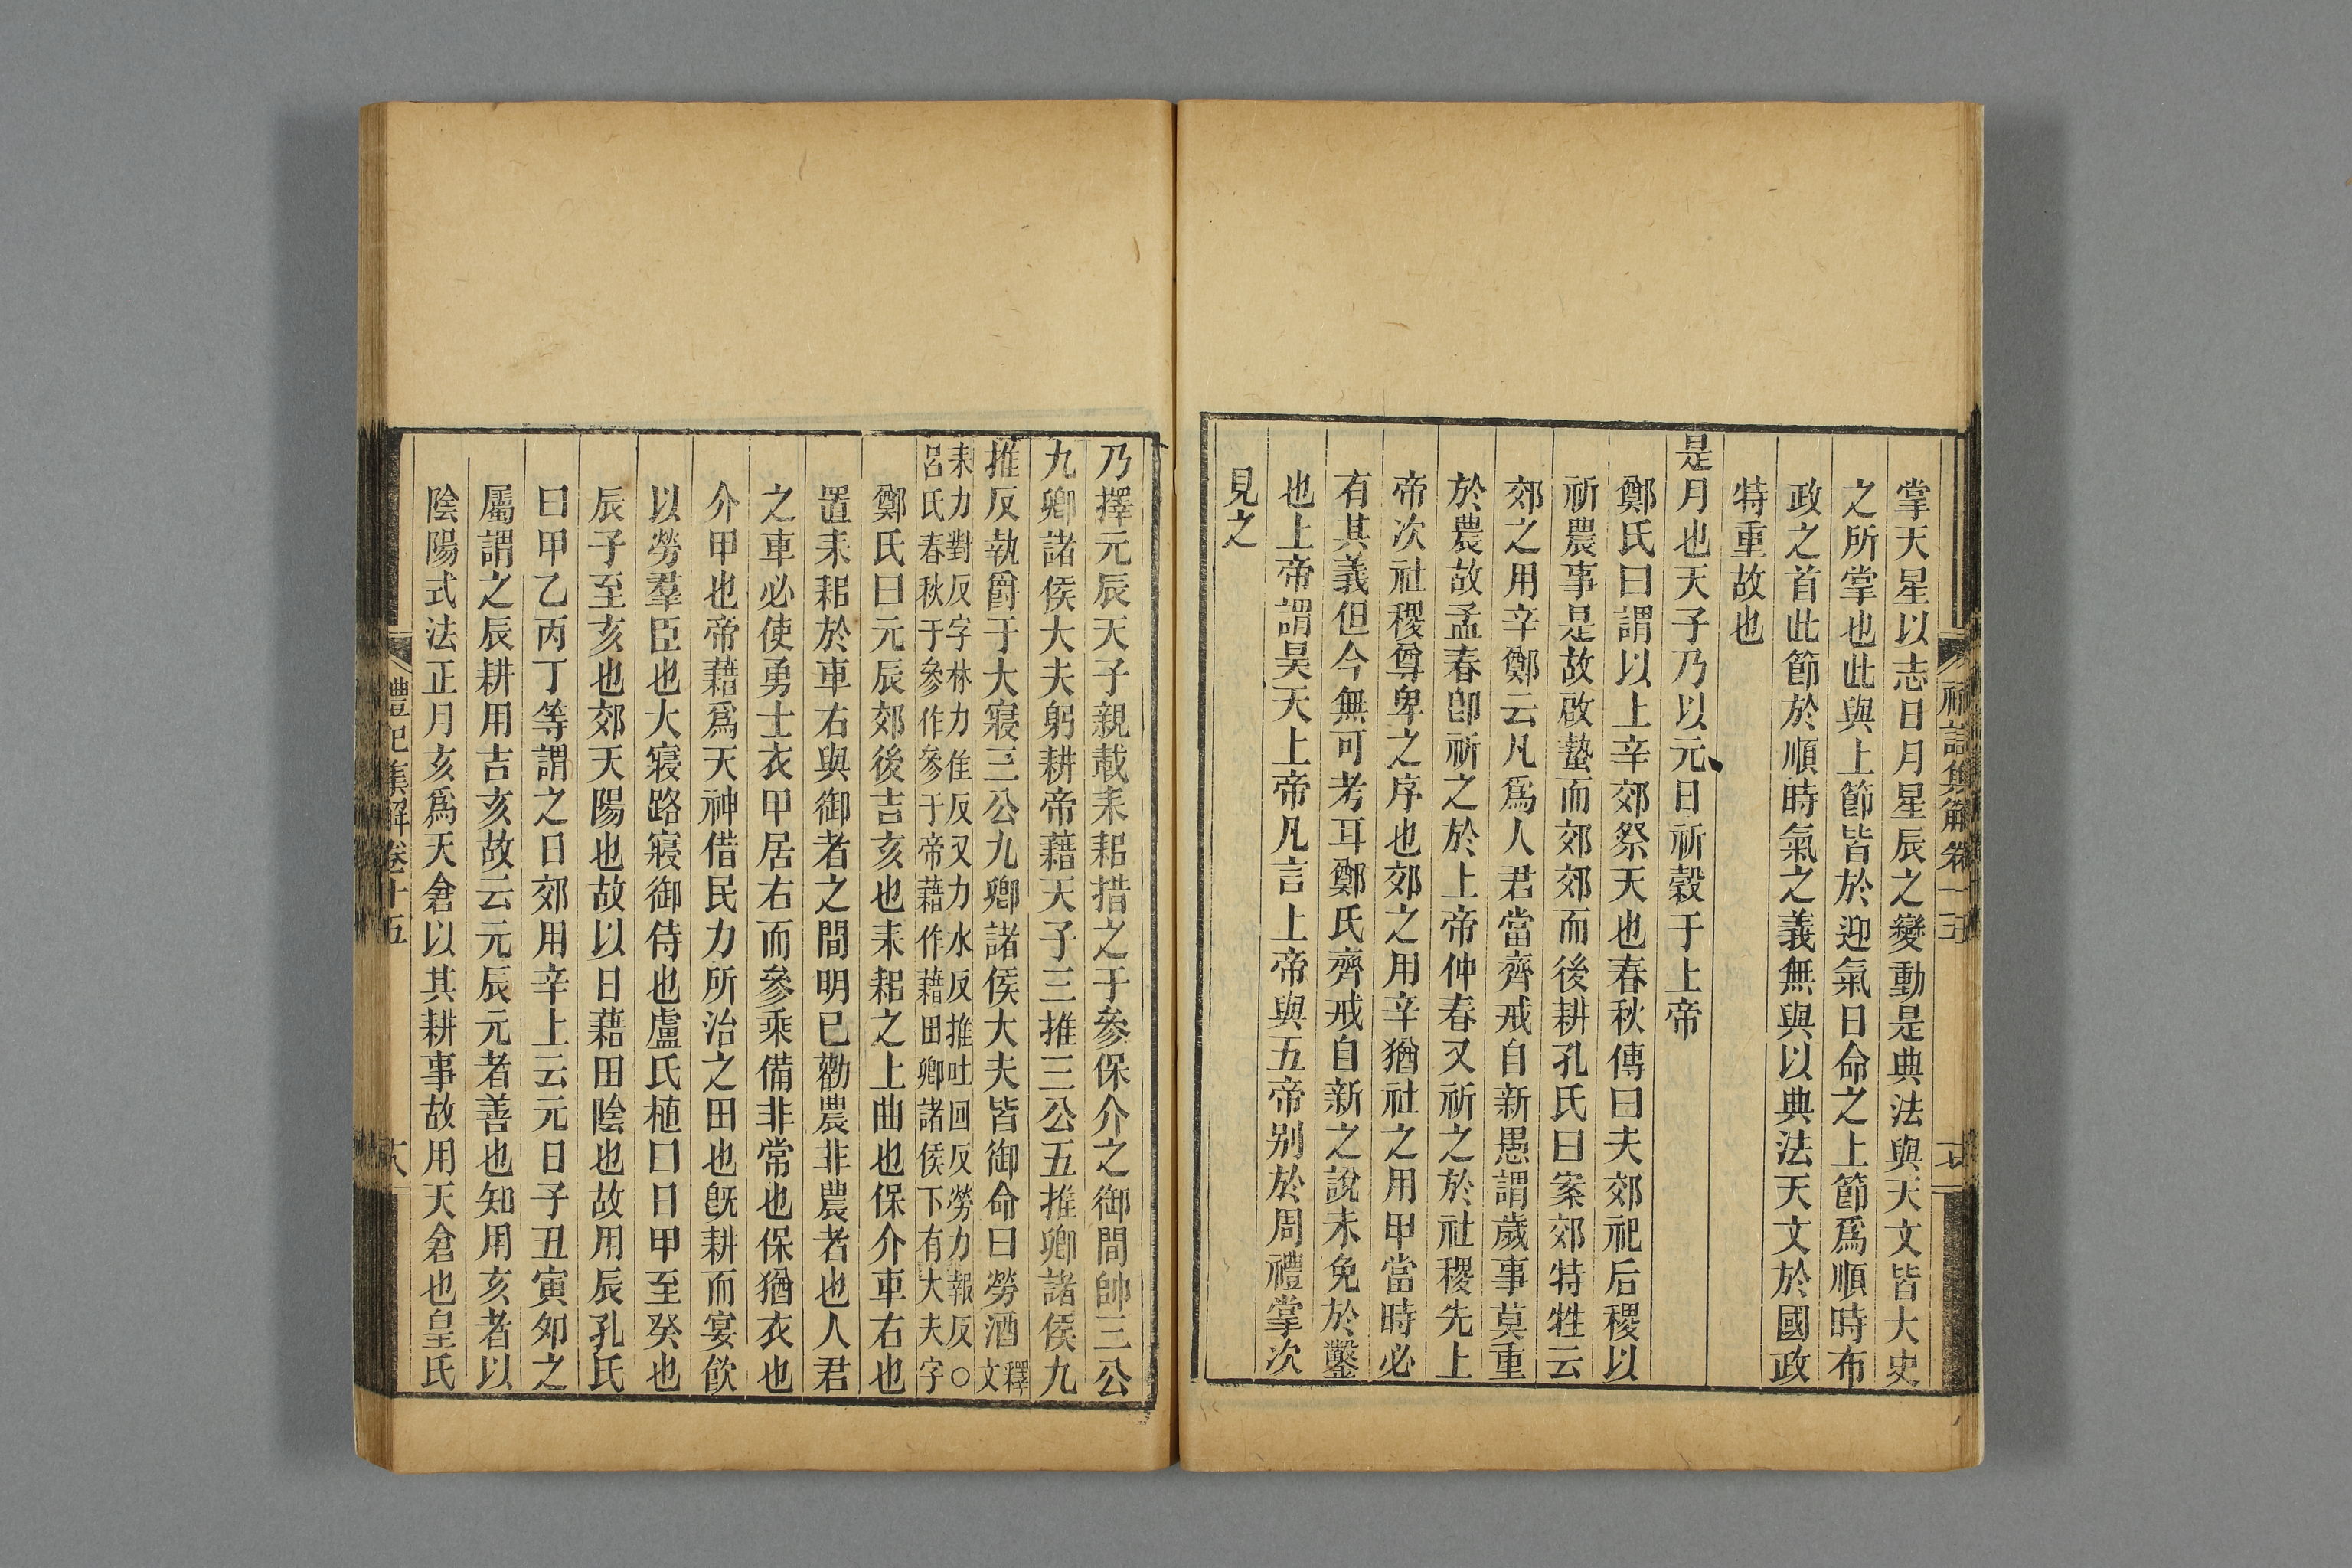 禮記集解卷十五
十七
掌天星以志日月星辰之變動是典法與天文皆大史
之所掌也此與上節皆於迎氣日命之上節爲順時布
政之首此節於順時氣之義無與以典法天文於國政
特重故也
是月也天子乃以元日祈穀于上帝
鄭氏曰謂以上辛郊祭天也春秋傳曰夫郊祀后稷以
祈農事是故啟蟄而郊郊而後耕孔氏曰案郊特牲云
郊之用辛鄭云凡爲人君當齊戒自新愚謂歲事莫重
於農故孟春卽祈之於上帝仲春又祈之於社稷先上
帝次社稷尊卑之序也郊之用辛猶社之用甲當時必
有其義但今無可考耳鄭氏齊戒自新之說未免於鑿
也上帝謂昊天上帝凡言上帝與五帝别於周禮掌次
見之
乃擇元辰天子親載耒耜措之于參保介之御間帥三公
九卿諸侯大夫躬耕帝藉天子三推三公五推卿諸侯九
推反執爵于大寢三公九卿諸侯大夫皆御命曰勞酒 釋文
耒力對反字林力隹反又力水反推吐回反勞力報反○
呂氏春秋于參作參于帝藉作藉田卿諸侯下有大夫字
鄭氏曰元辰郊後吉亥也耒耜之上曲也保介車右也
置耒耜於車右與御者之間明已勸農非農者也人君
之車必使勇士衣甲居右而參乘備非常也保猶衣也
介甲也帝藉爲天神借民力所治之田也旣耕而宴飮
以勞羣臣也大寢路寢御侍也盧氏植曰日甲至癸也
辰子至亥也郊天陽也故以日藉田陰也故用辰孔氏
曰甲乙丙丁等謂之日郊用辛上云元日子丑寅夘之
屬謂之辰耕用吉亥故云元辰元者善也知用亥者以
陰陽式法正月亥爲天倉以其耕事故用天倉也皇氏
禮記集解卷十五
十八